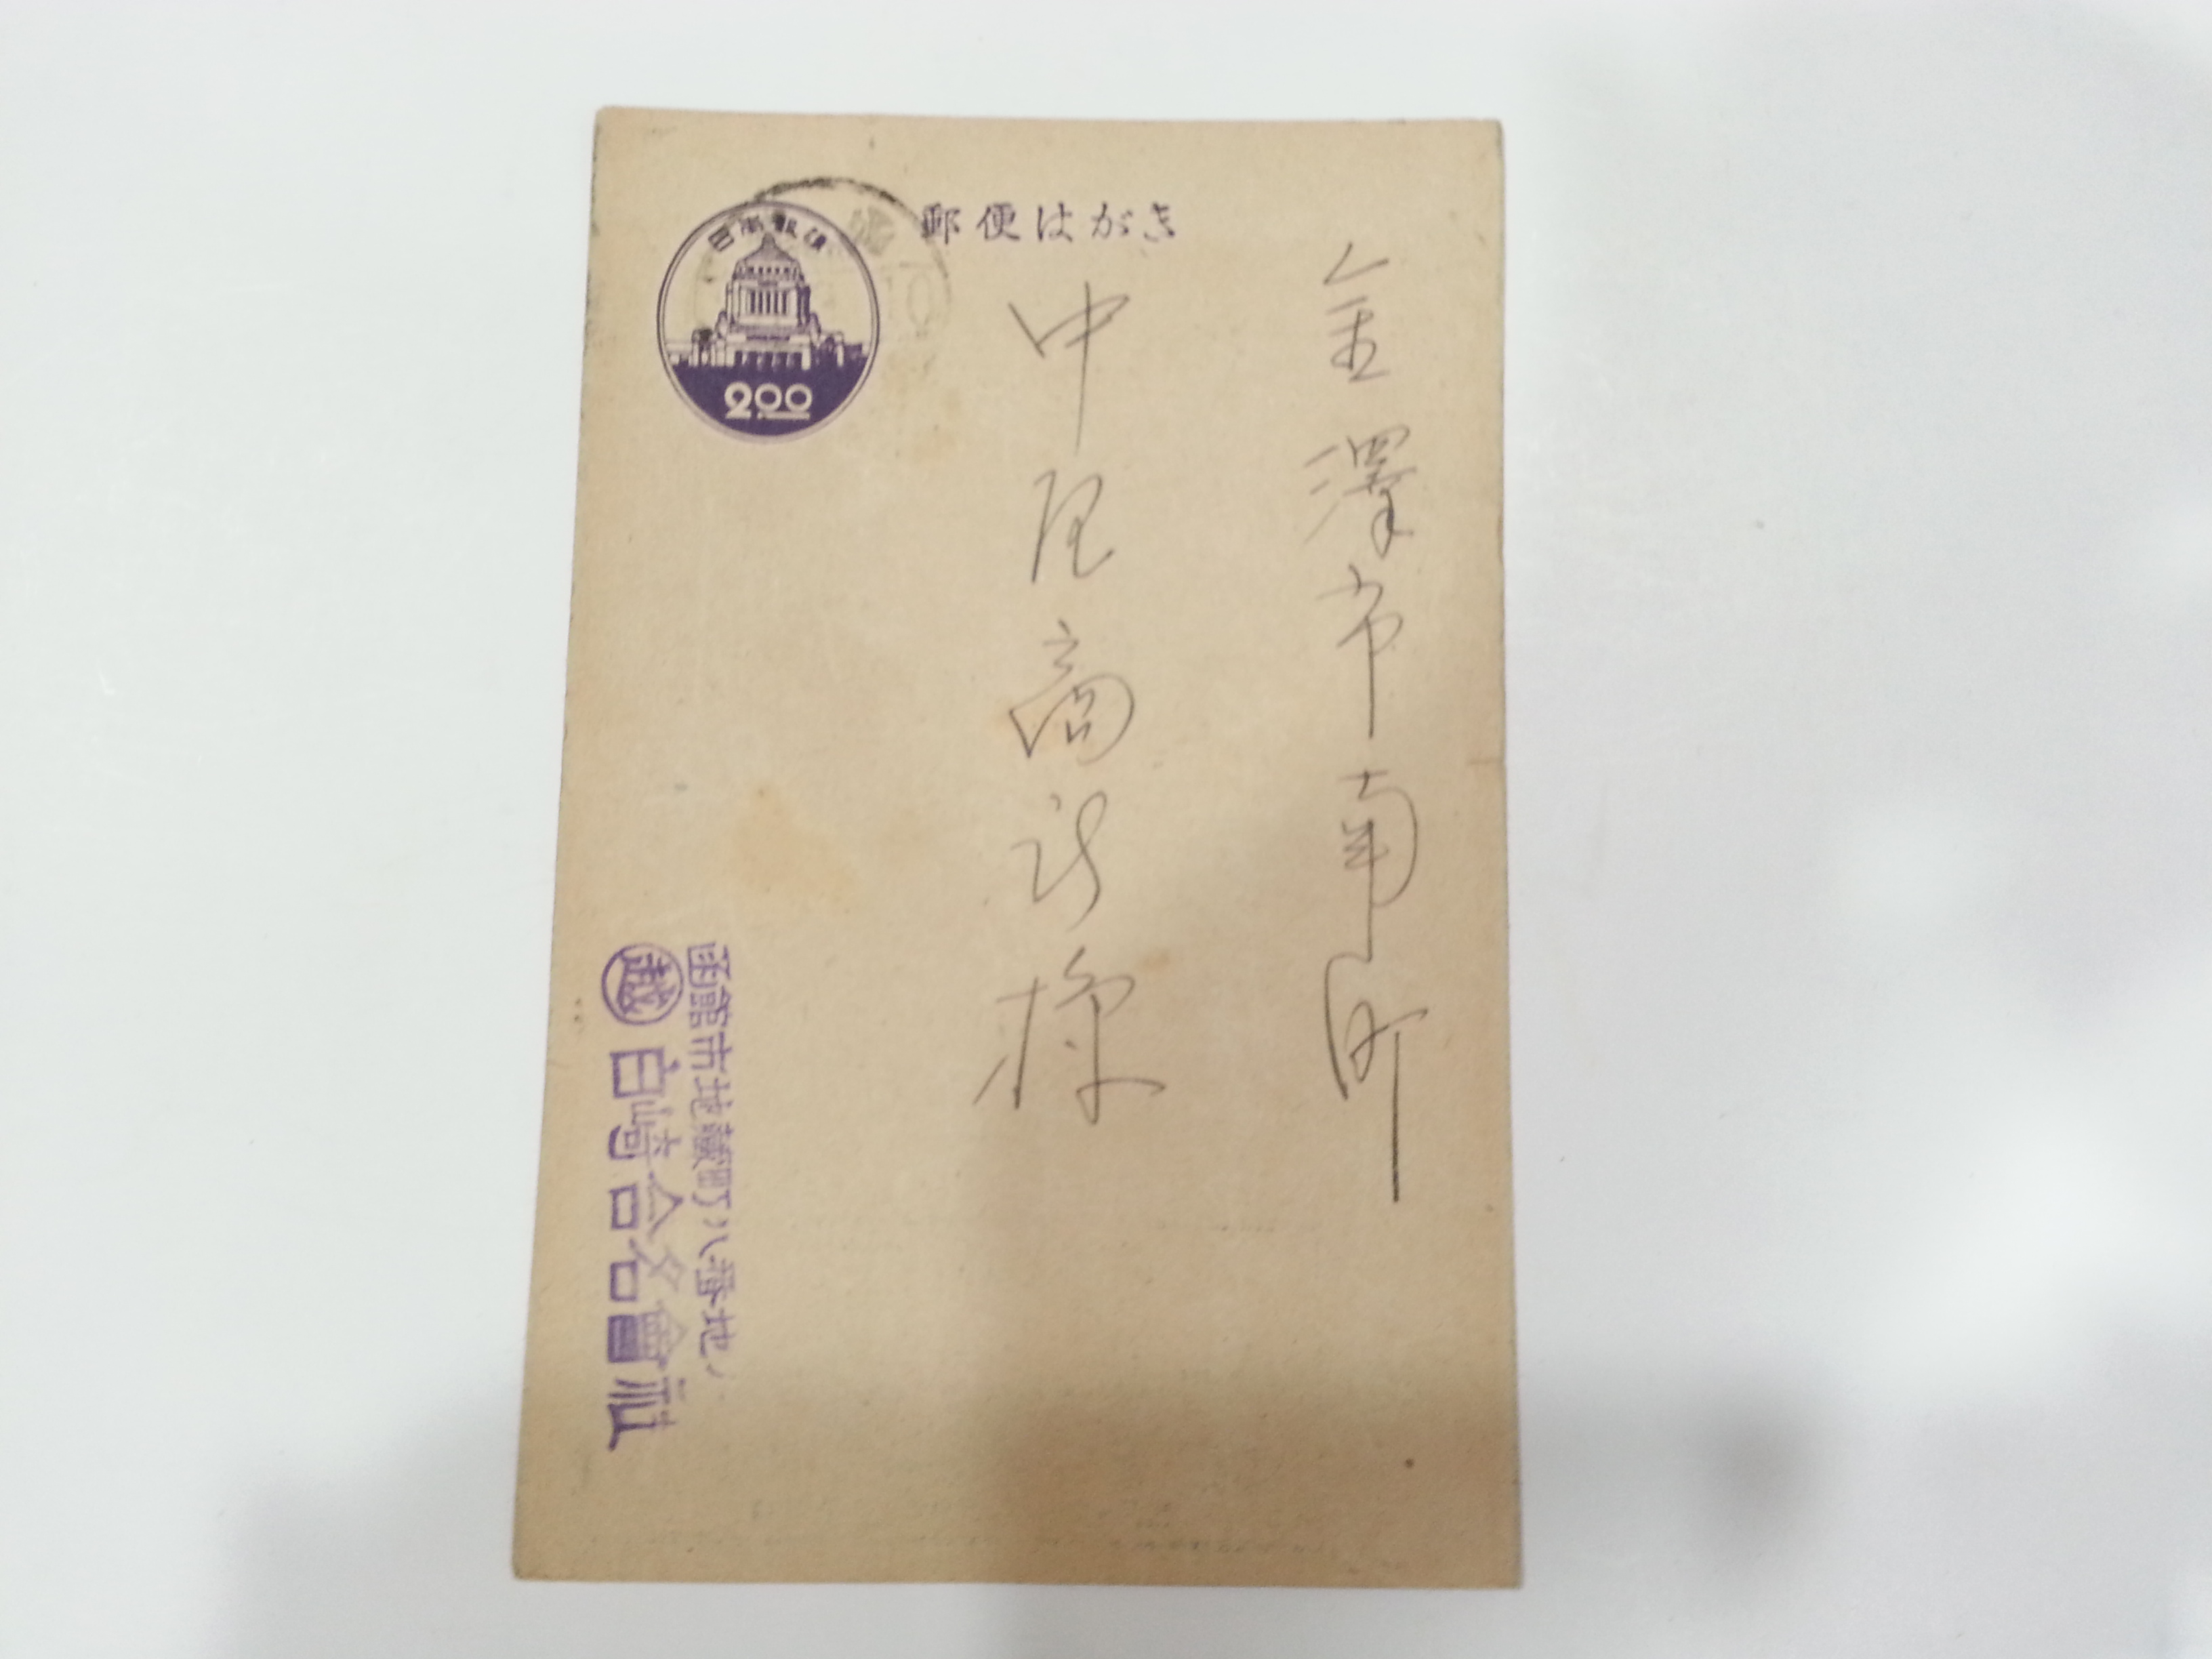 郵便はがき
日本郵便
2.00
金澤市南町
中屋商行様
函館市地蔵町八番地ノ
越 白崎合名會社